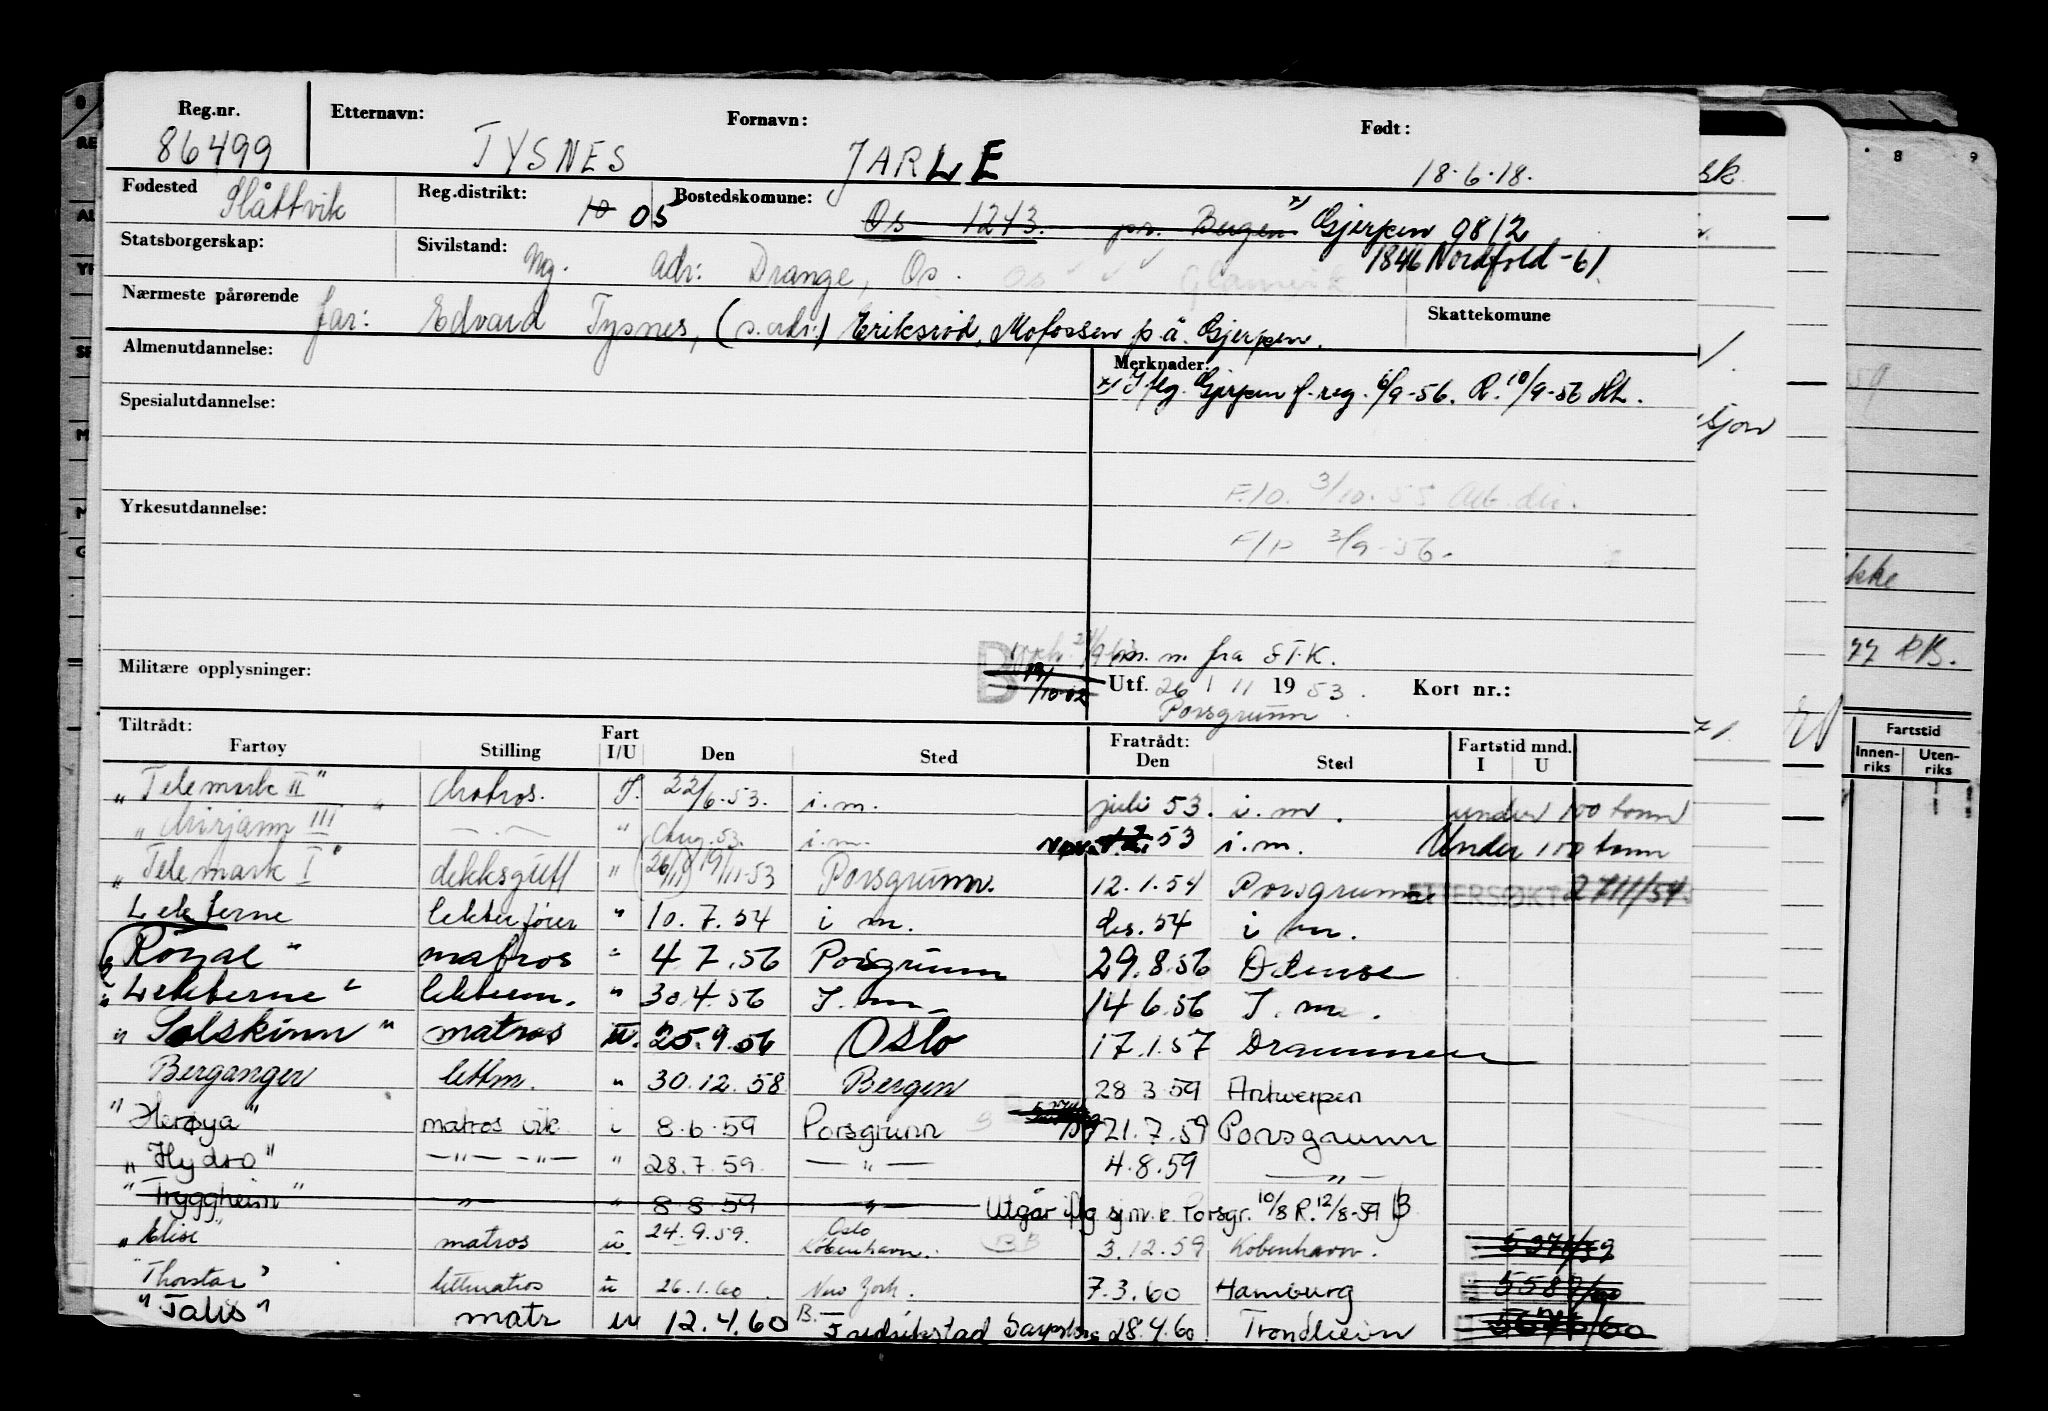 Reg.nr. Etternavn: Fornavn: Født:
86499 TYSNES JARLE 18.6.18.
Fødested Slåttvik Reg.distrikt: 10 05 Bostedskomune: Os 1243. pr. Bergen x) Gjerpen 0812
Statsborgerskap: Sivilstand: Ug. adr: Drange, Os. 1846 Nordfold -61
Nærmeste pårørende far: Edvard Tysnes, (s. adr.) Eriksrød, Mofossen p.å. Gjerpen. Skattekomune
Almenutdannelse: Merknader:
x) Iflg. Gjerpen f.reg. 6/9-56. R. 10/9-56
Spesialutdannelse:
F/O. 3/10-55 Arb.dir.
Yrkesutdannelse:
F/P 3/9-56.
m. fra S.T.K.
Militære opplysninger: Utf. 26 / 11 1953. Kort nr.:
Porsgrunn.
Tiltrådt: Fratrådt: Fartstid mnd.
Fartøy Stilling Fart I/U Den Sted Den Sted I U
"Telemark II" Matros. I. 22/6-53. i.m. juli 53. i.m. under 100 tonn
"Mirjam III" — " — " Aug. 53. i.m. Nov. 53 i.m. Under 100 tonn
"Telemark I" dekksgutt " (26/11) 19/11-53 Porsgrunn. 12.1.54 Porsgrunn ETTERSØKT 2711/54
Lekterne lekterfører " 10.7.54 i m. des. 54 i m.
"Royal" matros " 4.7.56 Porsgrunn 29.8.56 Odense
"Lekterne" lekterm. " 30.4.56 I.m 14.6.56 I.m.
"Solskinn" matros u. 25.9.56 Oslo 17.1.57 Drammen
Berganger lettm. " 30.12.58 Bergen 28.3.59 Antwerpen
"Herøya" matros vik i 8.6.59 Porsgrunn 21.7.59 Porsgrunn
"Hydro" — " — — " — " 28.7.59. — " — 4.8.59 — " —
"Tryggheim" " " 8 8 59 " Utgår iflg sj.m.k. Porsgr. 10/8 R. 12/8-59 B
"Elise" matros u. 24.9.59. Oslo København. 3.12.59 København.
"Thorstar" lettmatros u 26.1.60. New York. 7.3.60 Hamburg 5589/60
"Talis" matr u 12.4.60 Fredrikstad Sarpsborg 28.4.60 Trondheim
8 9
Fartstid
Innen-riks Uten-riks